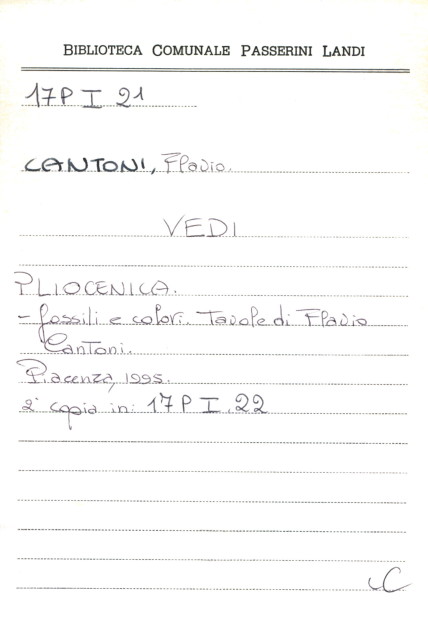 BIBLIOTECA COMUNALE PASSERINI LANDI
17P I 21
CANTONI, Flavio.
VEDI
PLIOCENICA.
- fossili e colori. Tavole di Flavio
Cantoni.
Piacenza, 1995.
2ª copia in: 17 P I. 22